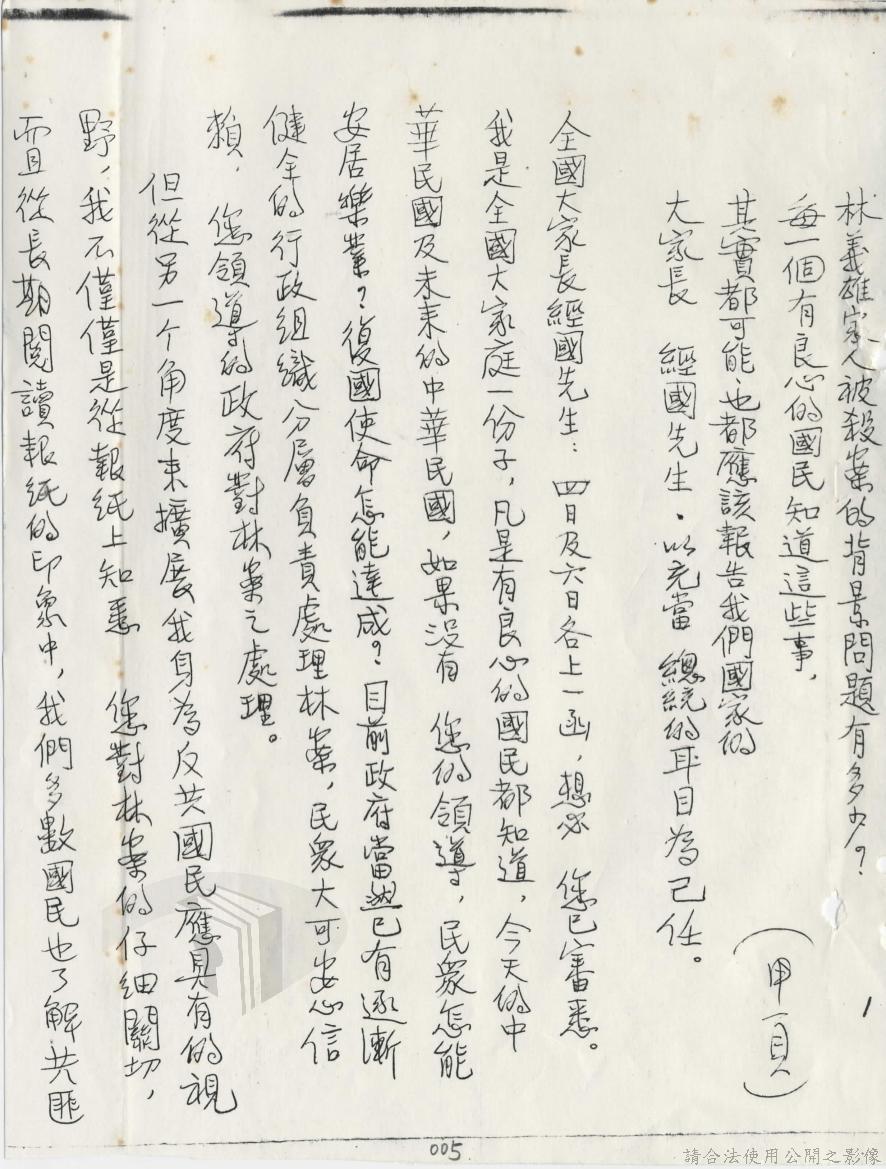 林義雄家人被殺案的背景問題有多少？
每一個有良心的國民知道這些事，
其實都可能也都應該報告我們國家的
大家長 經國先生．以充當 總統的耳目為己任。
1
(甲一頁)
全國大家長經國先生：四日及六日各上一函，想必 您已審悉。
我是全國大家庭一份子，凡是有良心的國民都知道，今天的中
華民國及未來的中華民國，如果沒有 您的領導，民眾怎能
安居樂業？復國使命怎能達成？目前政府當然已有逐漸
健全的行政組織分層負責處理林案，民眾大可安心信
賴． 您領導的政府對林案之處理。
但從另一个角度來擴展我身為反共國民應具有的視
野，我不僅僅是從報紙上知悉 您對林案的仔細關切，
而且從長期閱讀報紙的印象中，我們多數國民也了解共匪
005
請合法使用公開之影像